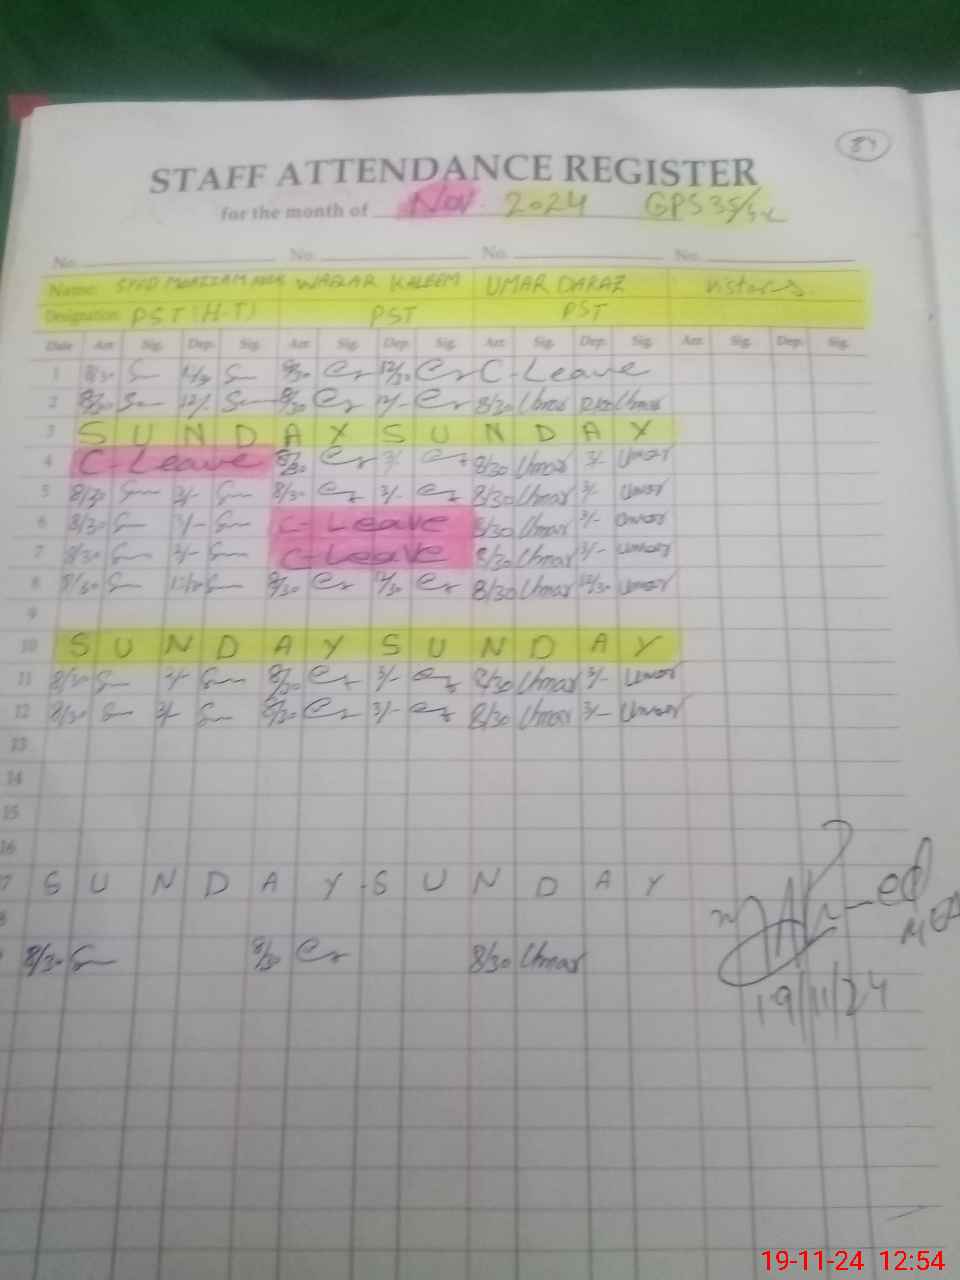 84
STAFF ATTENDANCE REGISTER
for the month of Nov 2024 GPS 35/
No. No. No. No.
Name: SYED MOAZZAM WAQAR KALEEM UMAR DARAZ
Designation: PST (H-T) PST PST
Date Arr. Sig. Dep. Sig. Arr. Sig. Dep. Sig. Arr. Sig. Dep. Sig. Arr. Sig. Dep. Sig.
1 8/30 8/30 12/30 C-Leave
2 8/30 12/- 8/30 12/- 8/30 Umar Umar
3 S U N D A Y S U N D A Y
4 C-Leave 8/30 3/- 8/30 Umar 3/- Umar
5 8/30 3/- 8/30 3/- 8/30 Umar 3/- Umar
6 8/30 3/- C-Leave 8/30 Umar 3/- Umar
7 8/30 3/- C-Leave 8/30 Umar 3/- Umar
8 8/30 8/30 12/30 8/30 Umar 12/30 Umar
9
10 S U N D A Y S U N D A Y
11 8/30 3/- 8/30 3/- 8/30 Umar 3/- Umar
12 8/30 3/- 8/30 3/- 8/30 Umar 3/- Umar
13
14
15
16
7 S U N D A Y S U N D A Y
8
8/30 8/30 8/30 Umar
19/11/24
19-11-24 12:54